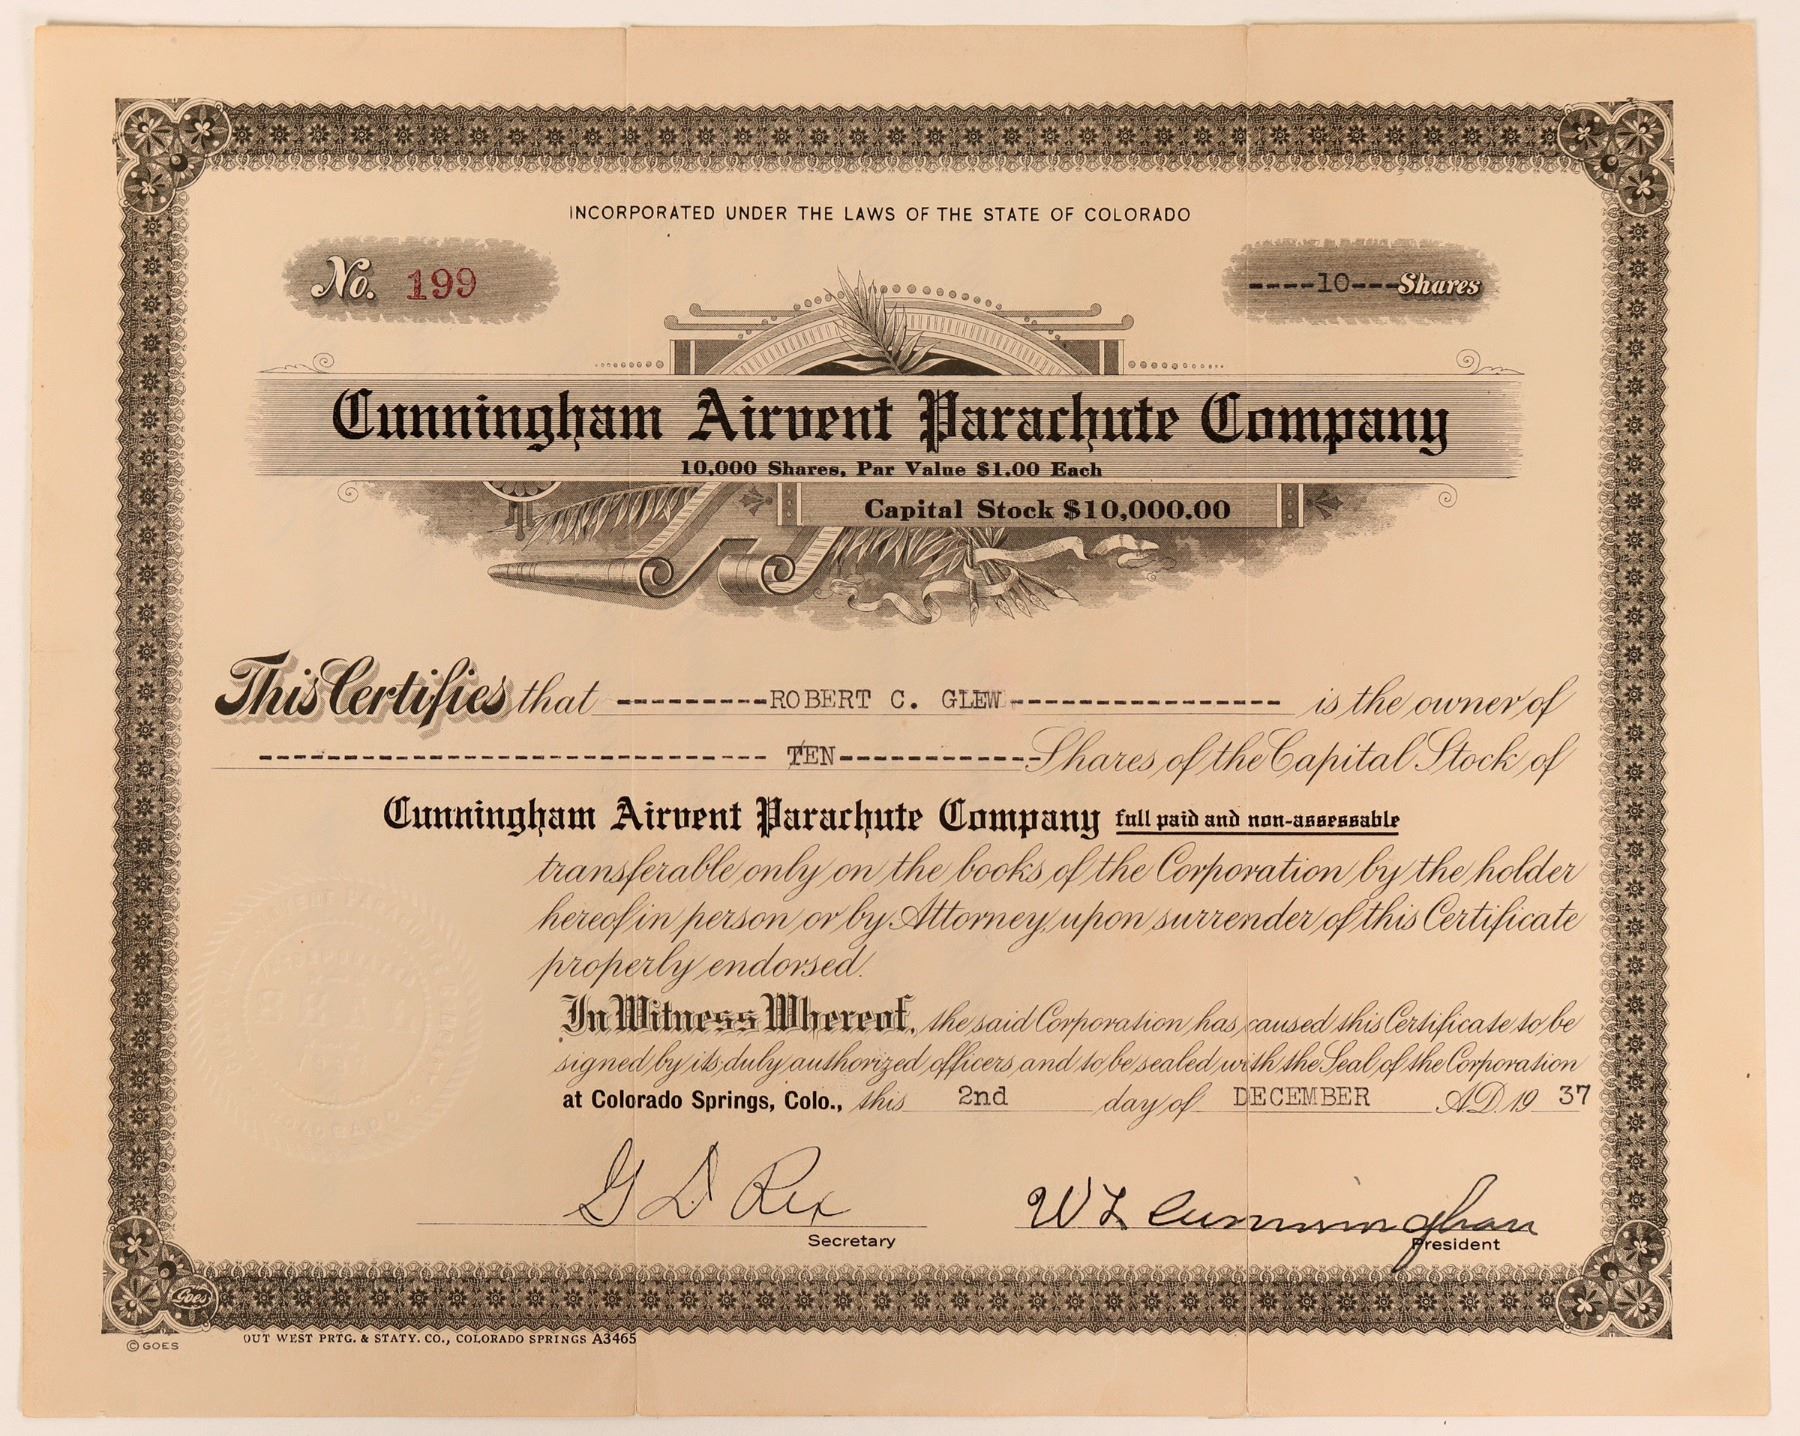 INCORPORATED UNDER THE LAWS OF THE STATE OF COLORADO
No. 199
----10---Shares
Cunningham Airvent Parachute Company
10,000 Shares, Par Value $1.00 Each
Capital Stock $10,000.00
This Certifies that ---------ROBERT C. GLEW---------------- is the owner of
------------------------------ TEN------------Shares of the Capital Stock of
Cunningham Airvent Parachute Company full paid and non-assessable
transferable only on the books of the Corporation by the holder
hereof in person or by Attorney, upon surrender of this Certificate
properly endorsed.
In Witness Whereof, the said Corporation has caused this Certificate to be
signed by its duly authorized officers, and to be sealed with the Seal of the Corporation
at Colorado Springs, Colo., this 2nd day of DECEMBER A.D. 19 37
G D Rex
Secretary
W L Cunningham
President
Goes
OUT WEST PRTG. & STATY. CO., COLORADO SPRINGS A3465
© GOES